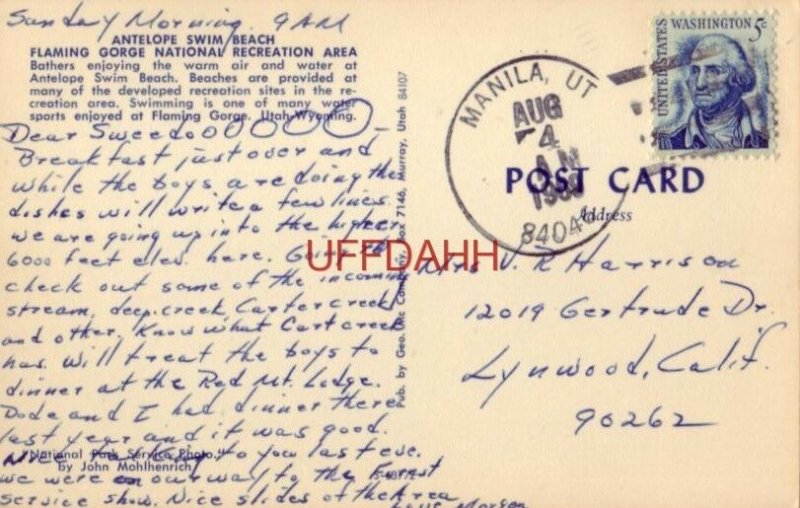 Sunday Morning 9 AM
ANTELOPE SWIM BEACH
FLAMING GORGE NATIONAL RECREATION AREA
Bathers enjoying the warm air and water at
Antelope Swim Beach. Beaches are provided at
many of the developed recreation sites in the re-
creation area. Swimming is one of many water
sports enjoyed at Flaming Gorge, Utah-Wyoming.
Dear Sweedooooooo-
Breakfast just over and
while the boys are doing the
dishes will write a few lines.
we are going up into the higher
6000 feet elev. here. Going to
check out some of the incoming
stream, deep creek, Carter creek
and other. Know what Cart creek
has. Will treat the boys to
dinner at the Red Mt. Lodge.
Dade and I had dinner there
last year and it was good.
Nice to to you last eve.
"National Park Service Photo,"
by John Mohlhenrich
we were on our way to the Forest
service show. Nice slides of the Area
Love Morgan
Pub. by Geo. Company, Box 7146, Murray, Utah 84107
UFFDAHH
MANILA, UT
AUG
4
AM
84046
UNITED STATES
WASHINGTON 5c
POST CARD
Address
Mrs V. R Harrison
12019 Gertrude Dr.
Lynwood, Calif.
90262